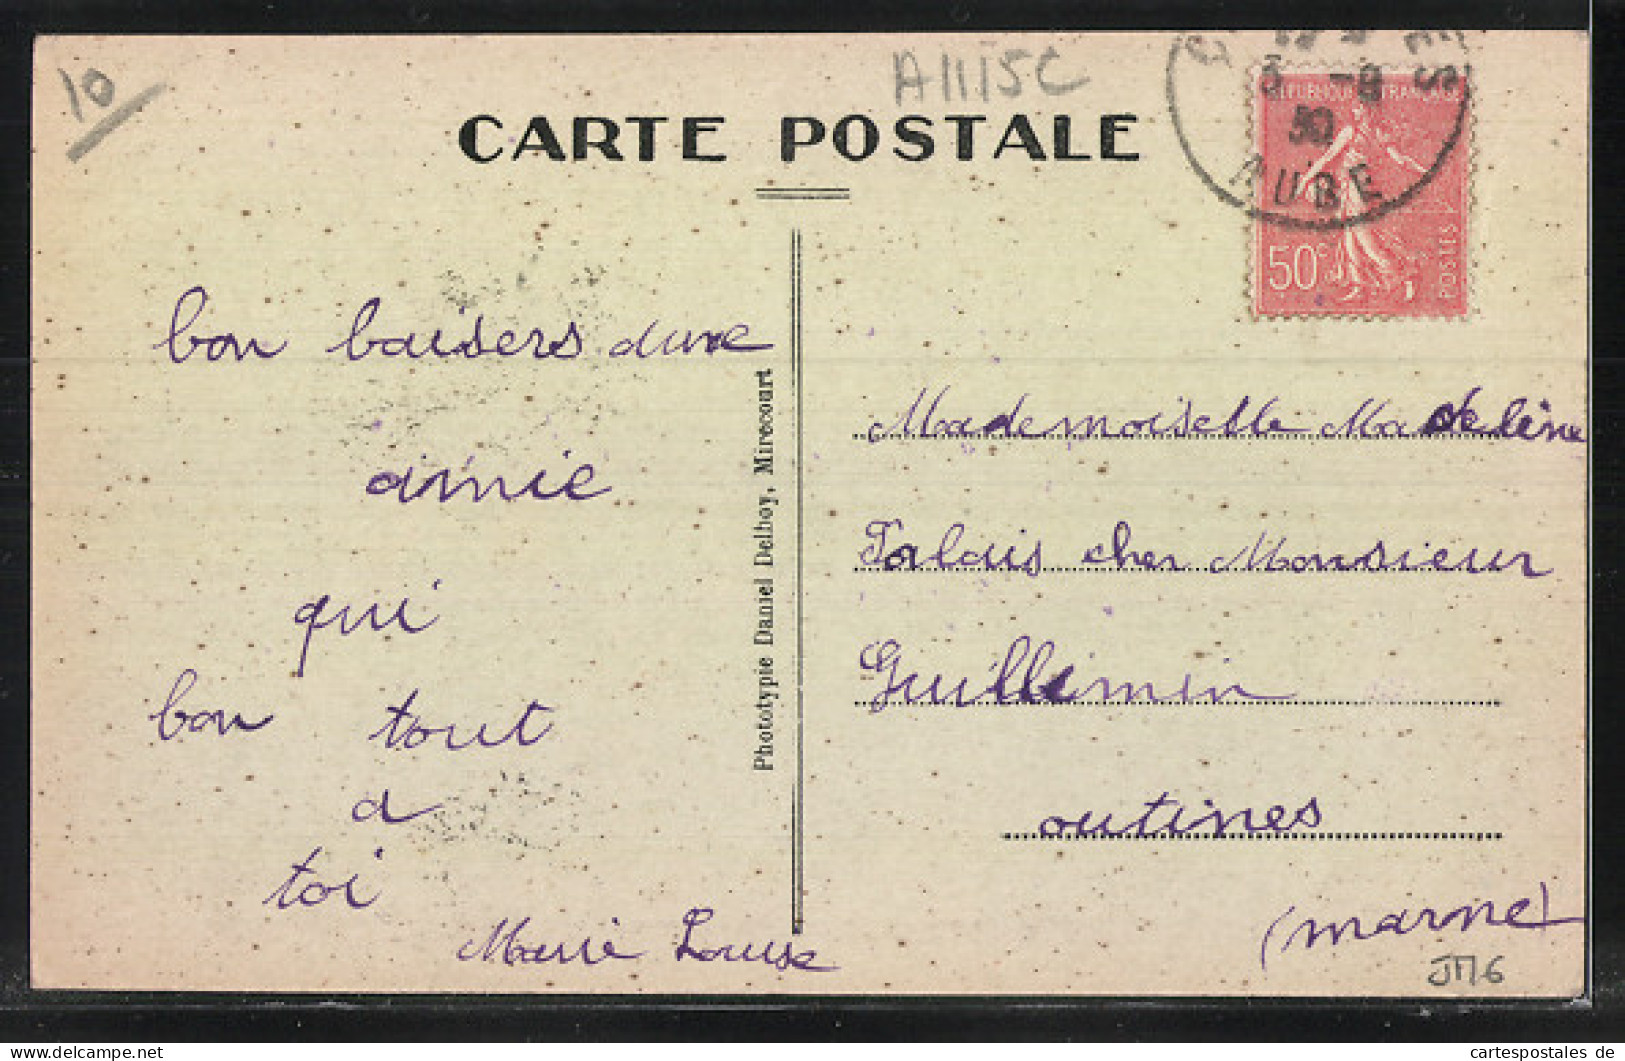 10
A1115C
CARTE POSTALE
REPUBLIQUE FRANÇAISE
30
AUBE
50c
POSTES
bon baisers dune
amie
qui
bon tout
a
toi
Marie Louise
Phototypie Daniel Delboy, Mirecourt
Mademoiselle Madeleine
Palais cher Monsieur
Guillemin
outines
(marne)
JM6
www.cartespostales.de